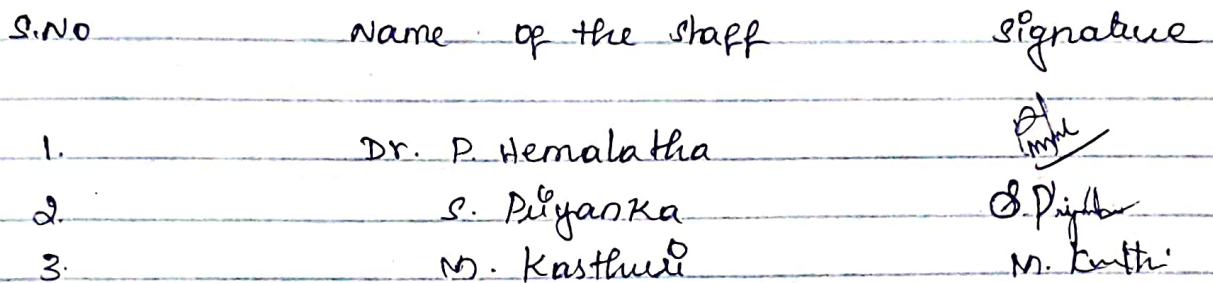 S.No Name of the staff Signature
1. Dr. P. Hemalatha
2. S. Priyanka S. Priyanka
3. M. Kasthuri M.